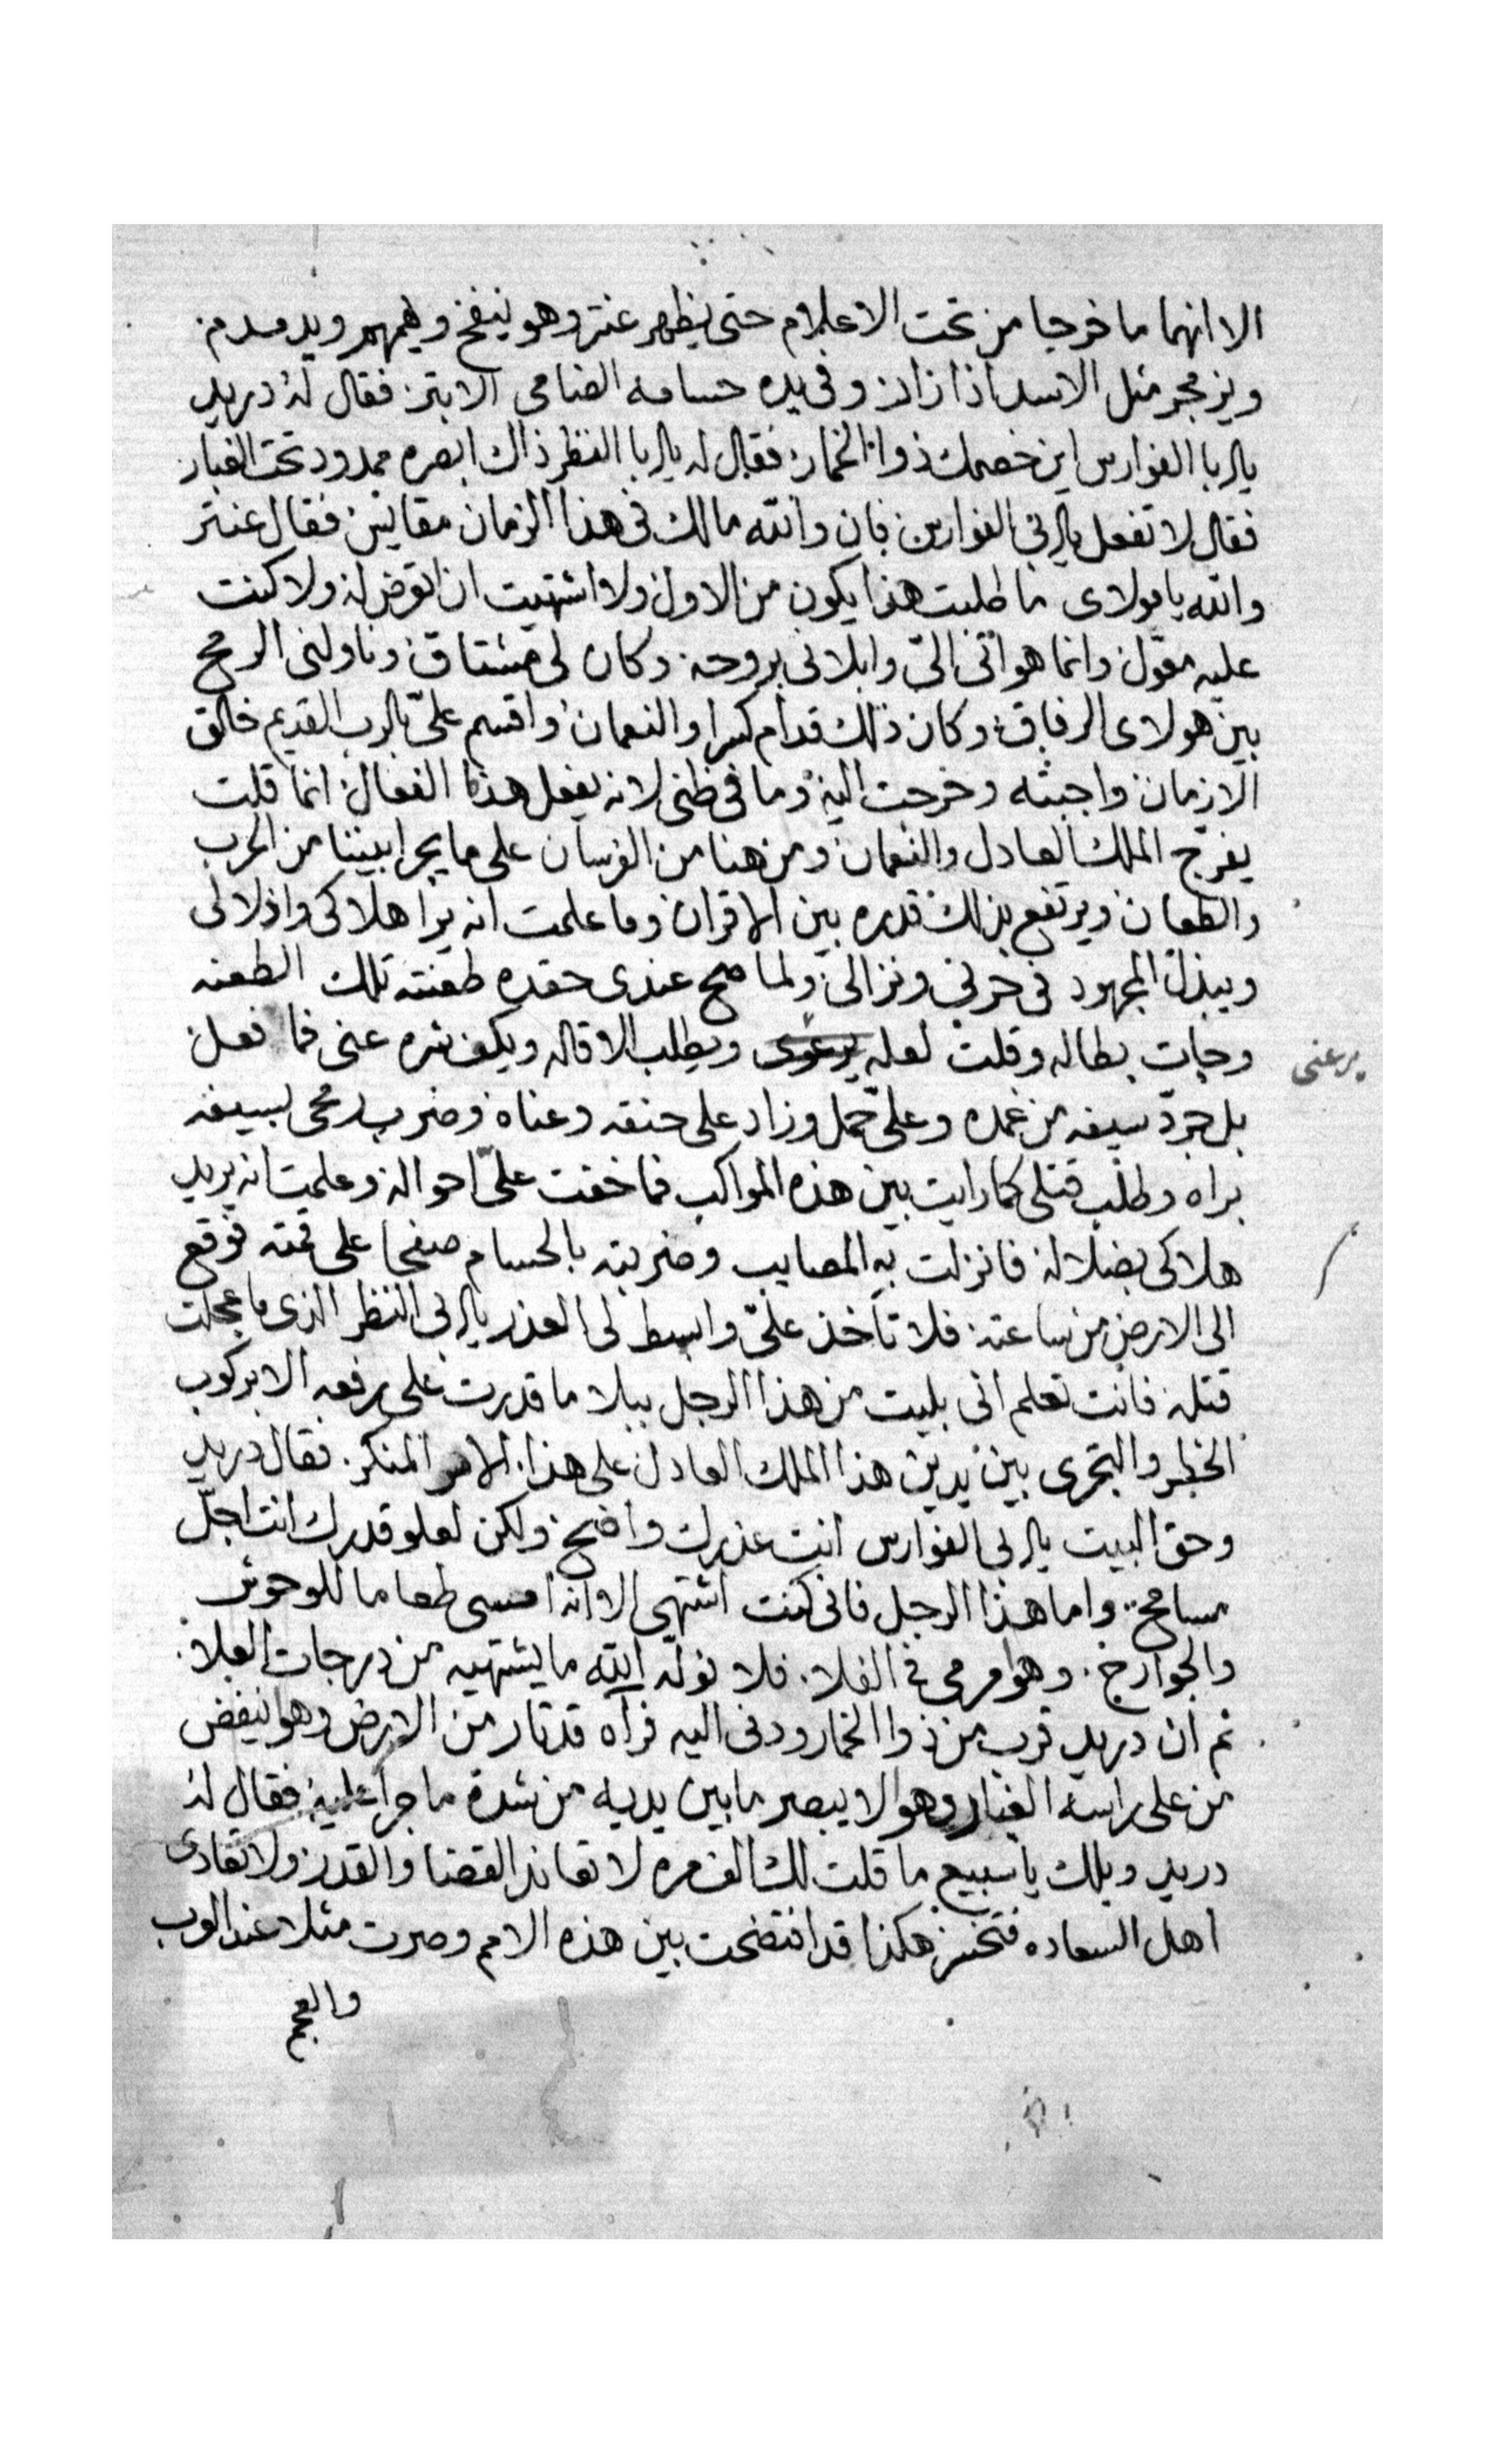 الا انهما ما خرجا من تحت الاعلام حتى ظهر عنتر وهو ينفخ ويهمهم ويدمدم
ويزمجر مثل الاسد اذا زار وفي يده حسامه الضامي الابتر فقال له دريد
يا ابا الفوارس اين خصمك ذوا الخمار فقال له يا ابا النظر ذاك ابصره ممدود تحت الغبار
فقال لا تفعل يا ابي الفوارس فان والله مالك في هذا الزمان مقايس فقال عنتر
والله يا مولاى ما طلبت هذا يكون من الاول ولا اشتهيت ان اتعرض له ولا كنت
عليه معول وانما هو اتى اليّ وابلاني بروحه وكان لي مشتاق وناولني الرمح
بين هولاى الرفاق وكان ذلك قدام كسرا والنعمان واقسم عليّ بالرب القديم خالق
الازمان واجبته وخرجت اليه وما في ظني لانه يفعل هذا الفعال انما قلت
يفرج الملك العادل والنعمان ومن هنا من الفرسان على ما يجرا بيننا من الحرب
والطعان ويرتفع بذلك قدره بين الاقران وما علمت انه يرا هلاكي واذلالي
ويبذل المجهود في حربي ونزالي ولما صح عندي حقده طعنته تلك الطعنه
وجات بطاله وقلت لعله يرعوى ويطلب الاقاله ويكف شره عني فما فعل
يرعني
بل جرد سيفه من غمده وعليّ حمل وزاد على حنقه وعناه وضرب رمحي بسيفه
براه وطلب قتلي كما رايت بين هذه المواكب فما خفت عليّ احواله وعلمت انه يريد
هلاكي بضلاله فانزلت به المصايب وضربته بالحسام صفحا على قمته فوقع
الى الارض من ساعته فلا تأخذ عليّ وابسط لي العذر يا ابي النظر الذى ما عجلت
قتله فانت تعلم انى بليت من هذا الرجل ببلا ما قدرت على رفعه الا بركوب
الخطر والتجرى بين يدين هذا الملك العادل على هذا الامر المنكر فقال دريد
وحق البيت يا ابي الفوارس انت عذرك واضح ولكن لعلو قدرك انت اجلّ
مسامح واما هذا الرجل فاني كنت اشتهى الا انه امسى طعاما للوحوش
والجوارح وهوا مرمي في الفلا فلا نوله الله ما يشتهيه من درجات العلا
ثم ان دريد قرب من ذوا الخمار ودنى اليه فرآه قد ثار من الارض وهو ينفض
من على راسه الغبار وهوا لا يبصر ما بين يديه من شدة ما جرا عليه فقال له
دريد ويلك يا سبيع ما قلت لك الف مره لا تعاند القضا والقدر ولا تعادى
اهل السعاده فتخسر هكذا قد افتضحت بين هذه الامم وصرت مثلا عند العرب
والعجم